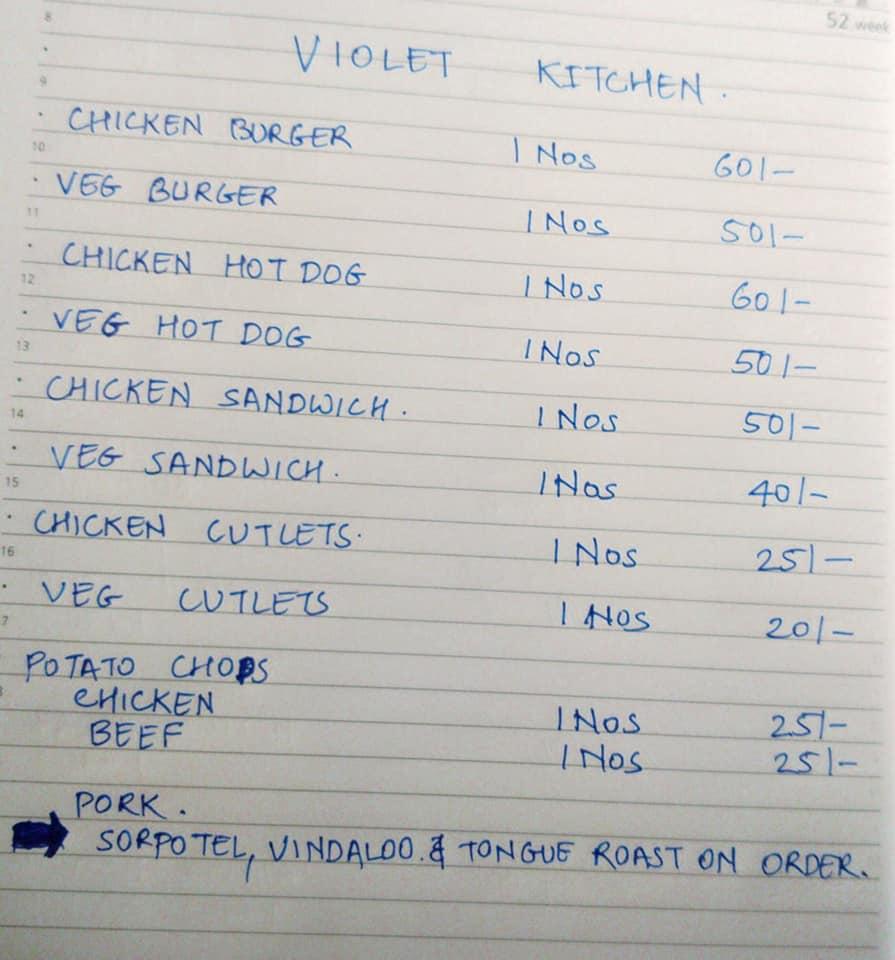 52 week
VIOLET KITCHEN.
8
9
· CHICKEN BURGER 1 Nos 60/-
10
· VEG BURGER 1 Nos 50/-
11
· CHICKEN HOT DOG 1 Nos 60/-
12
· VEG HOT DOG 1 Nos 50/-
13
· CHICKEN SANDWICH. 1 Nos 50/-
14
· VEG SANDWICH. 1 Nos 40/-
15
· CHICKEN CUTLETS. 1 Nos 25/-
16
· VEG CUTLETS 1 Nos 20/-
7
POTATO CHOPS
CHICKEN 1 Nos 25/-
BEEF 1 Nos 25/-
PORK.
SORPOTEL, VINDALOO. & TONGUE ROAST ON ORDER.